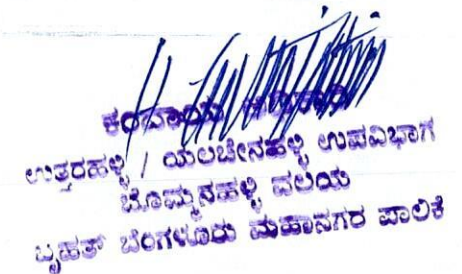 ಉತ್ತರಹಳ್ಳಿ / ಯಲಚೇನಹಳ್ಳಿ ಉಪವಿಭಾಗ
ಬೊಮ್ಮನಹಳ್ಳಿ ವಲಯ
ಬೃಹತ್ ಬೆಂಗಳೂರು ಮಹಾನಗರ ಪಾಲಿಕೆ